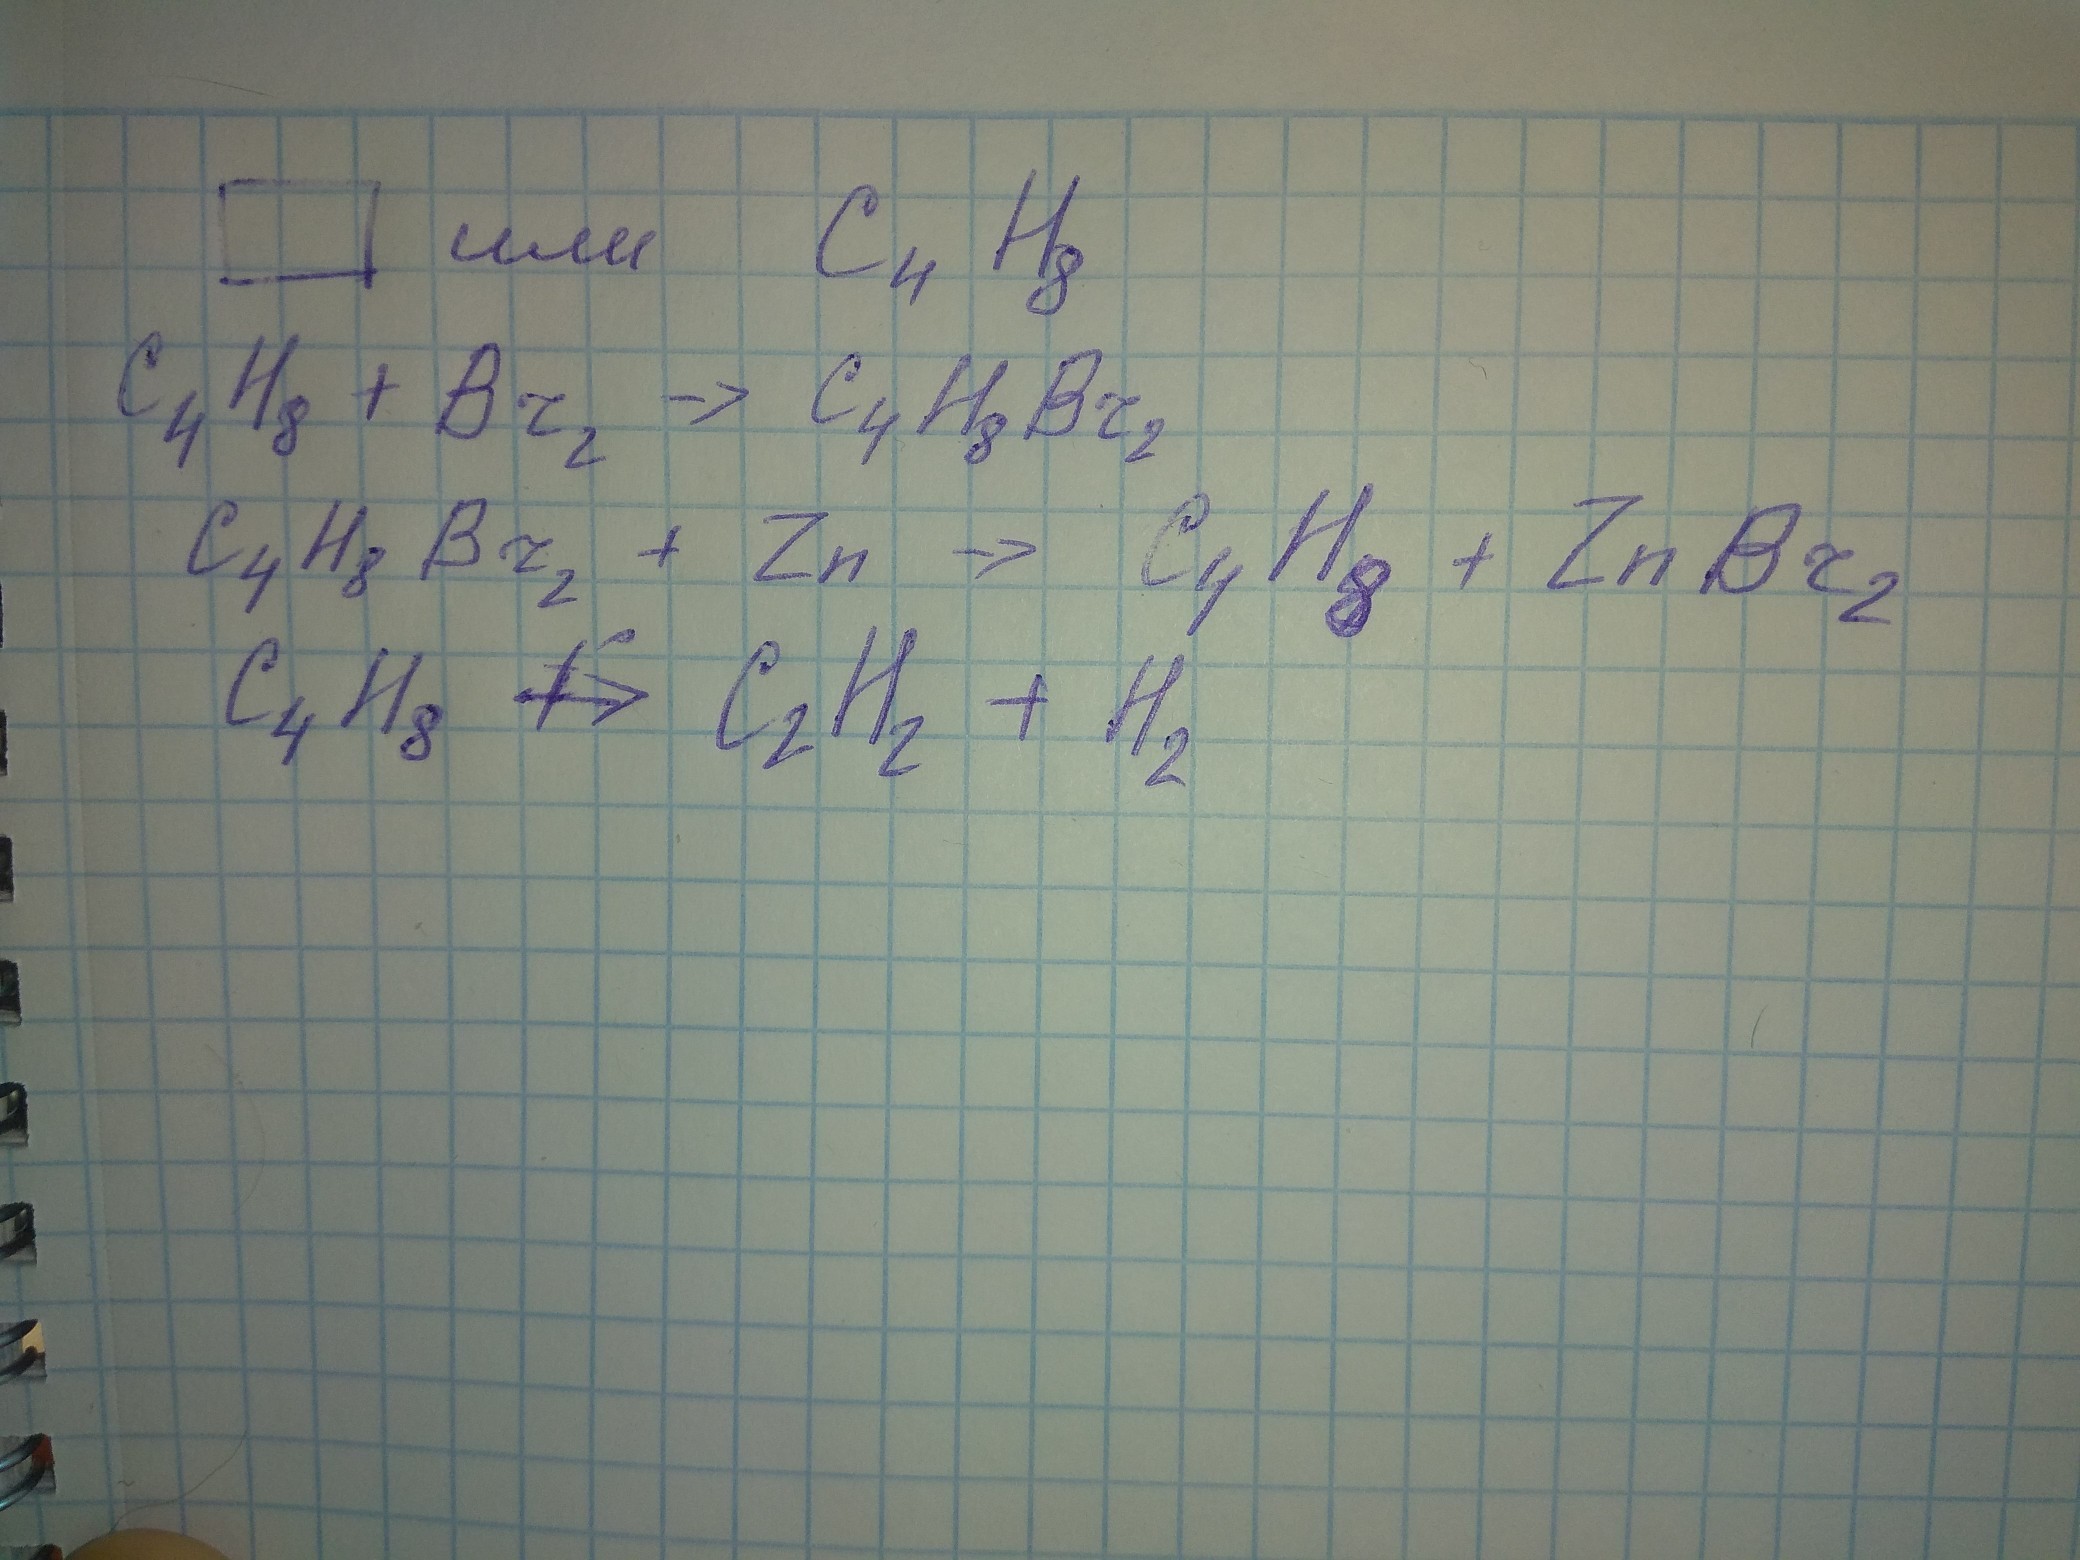 или C₄H₈
C₄H₈ + Br₂ → C₄H₈Br₂
C₄H₈Br₂ + Zn → C₄H₈ + ZnBr₂
C₄H₈ → C₂H₂ + H₂